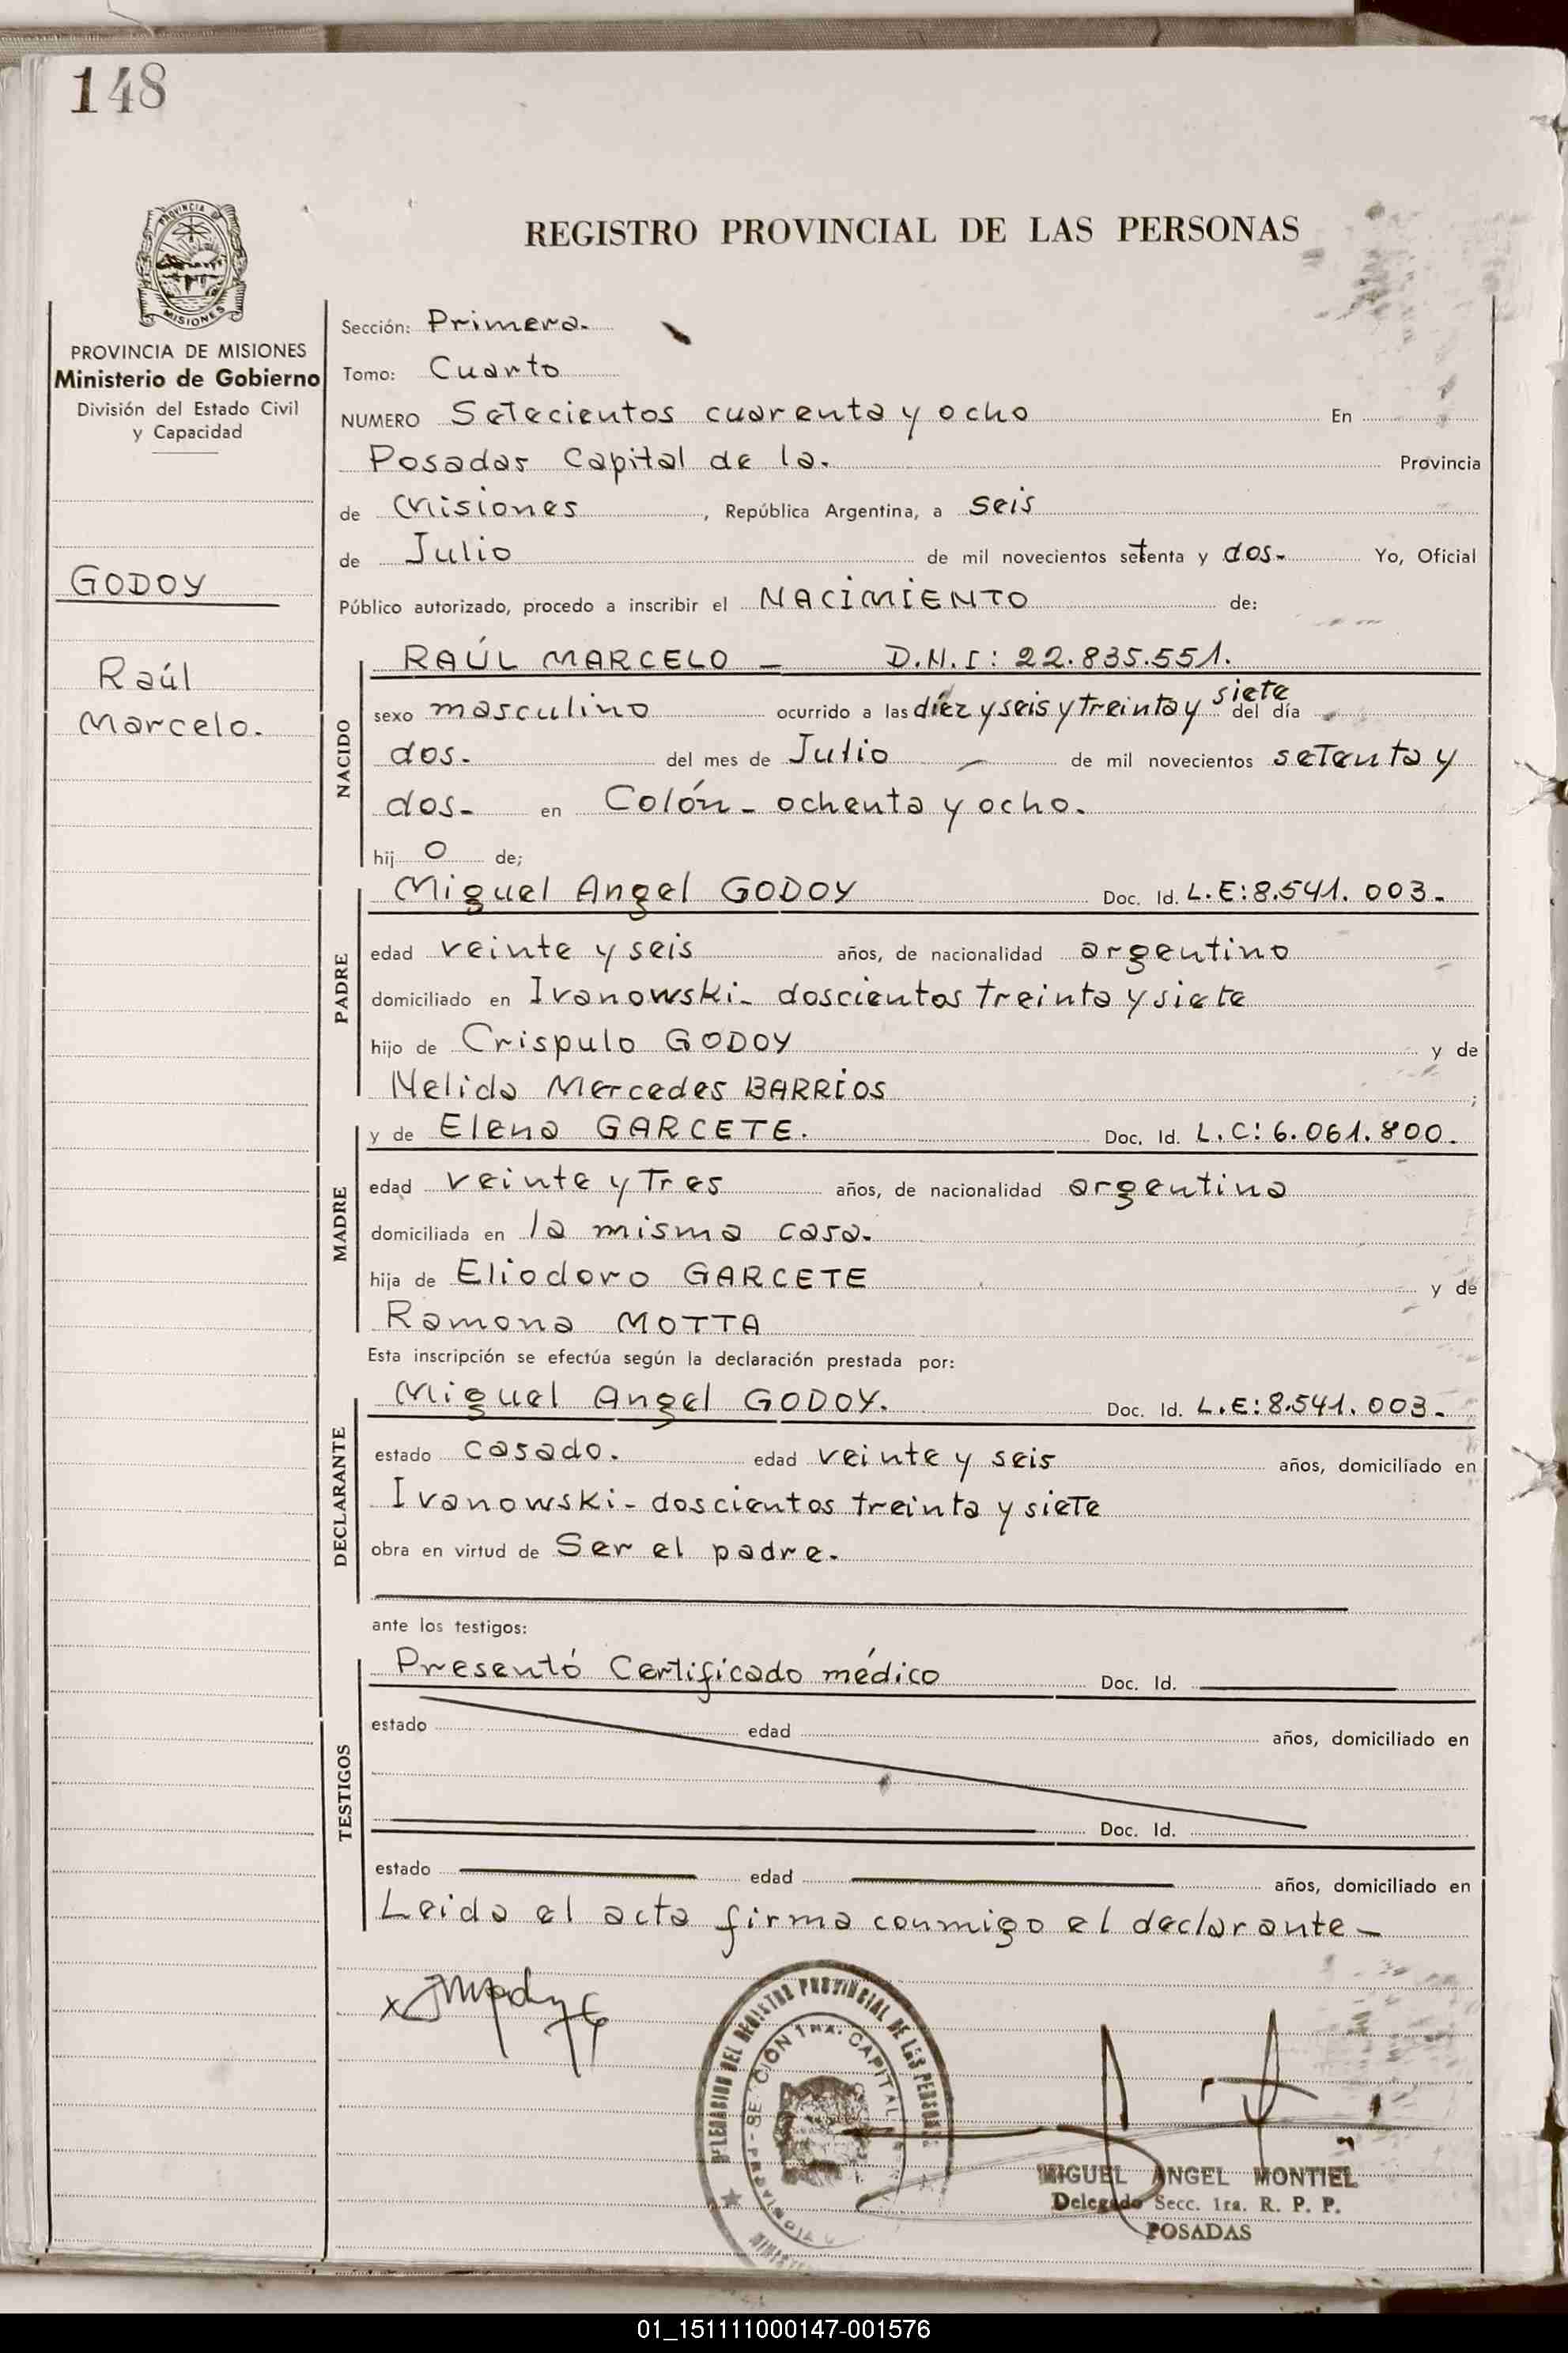 148
PROVINCIA DE
MISIONES
PROVINCIA DE MISIONES
Ministerio de Gobierno
División del Estado Civil
y Capacidad
GODOY
Raúl
Marcelo.
REGISTRO PROVINCIAL DE LAS PERSONAS
Sección: Primera.
Tomo: Cuarto
NUMERO Setecientos cuarenta y ocho En
Posadas Capital de la. Provincia
de Misiones, República Argentina, a seis
de Julio de mil novecientos setenta y dos- Yo, Oficial
Público autorizado, procedo a inscribir el NACIMIENTO de:
NACIDO
RAÚL MARCELO - D.N.I: 22.835.551.
sexo masculino ocurrido a las diez y seis y treinta y siete del día
dos. del mes de Julio - de mil novecientos setenta y
dos- en Colón- ochenta y ocho.
hij o de;
PADRE
Miguel Angel GODOY Doc. Id. L.E:8.541.003-
edad veinte y seis años, de nacionalidad argentino
domiciliado en Ivanowski- doscientos treinta y siete
hijo de Crispulo GODOY y de
Nelida Mercedes BARRIOS ;
MADRE
y de Elena GARCETE. Doc. Id. L.C: 6.061.800.
edad veinte y Tres años, de nacionalidad argentina
domiciliada en la misma casa.
hija de Eliodoro GARCETE y de
Ramona MOTTA
Esta inscripción se efectúa según la declaración prestada por:
DECLARANTE
Miguel Angel GODOY. Doc. Id. L.E:8.541.003-
estado casado. edad veinte y seis años, domiciliado en
Ivanowski- doscientos treinta y siete
obra en virtud de Ser el padre.
ante los testigos:
TESTIGOS
Presentó Certificado médico Doc. Id.
estado edad años, domiciliado en
Doc. Id.
estado edad años, domiciliado en
Leida el acta firma conmigo el declarante-
x
DELEGACION DEL REGISTRO PROVINCIAL DE LAS PERSONAS
SECCION 1RA. CAPITAL
MIGUEL ANGEL MONTIEL
Delegado Secc. 1ra. R. P. P.
POSADAS
01_151111000147-001576